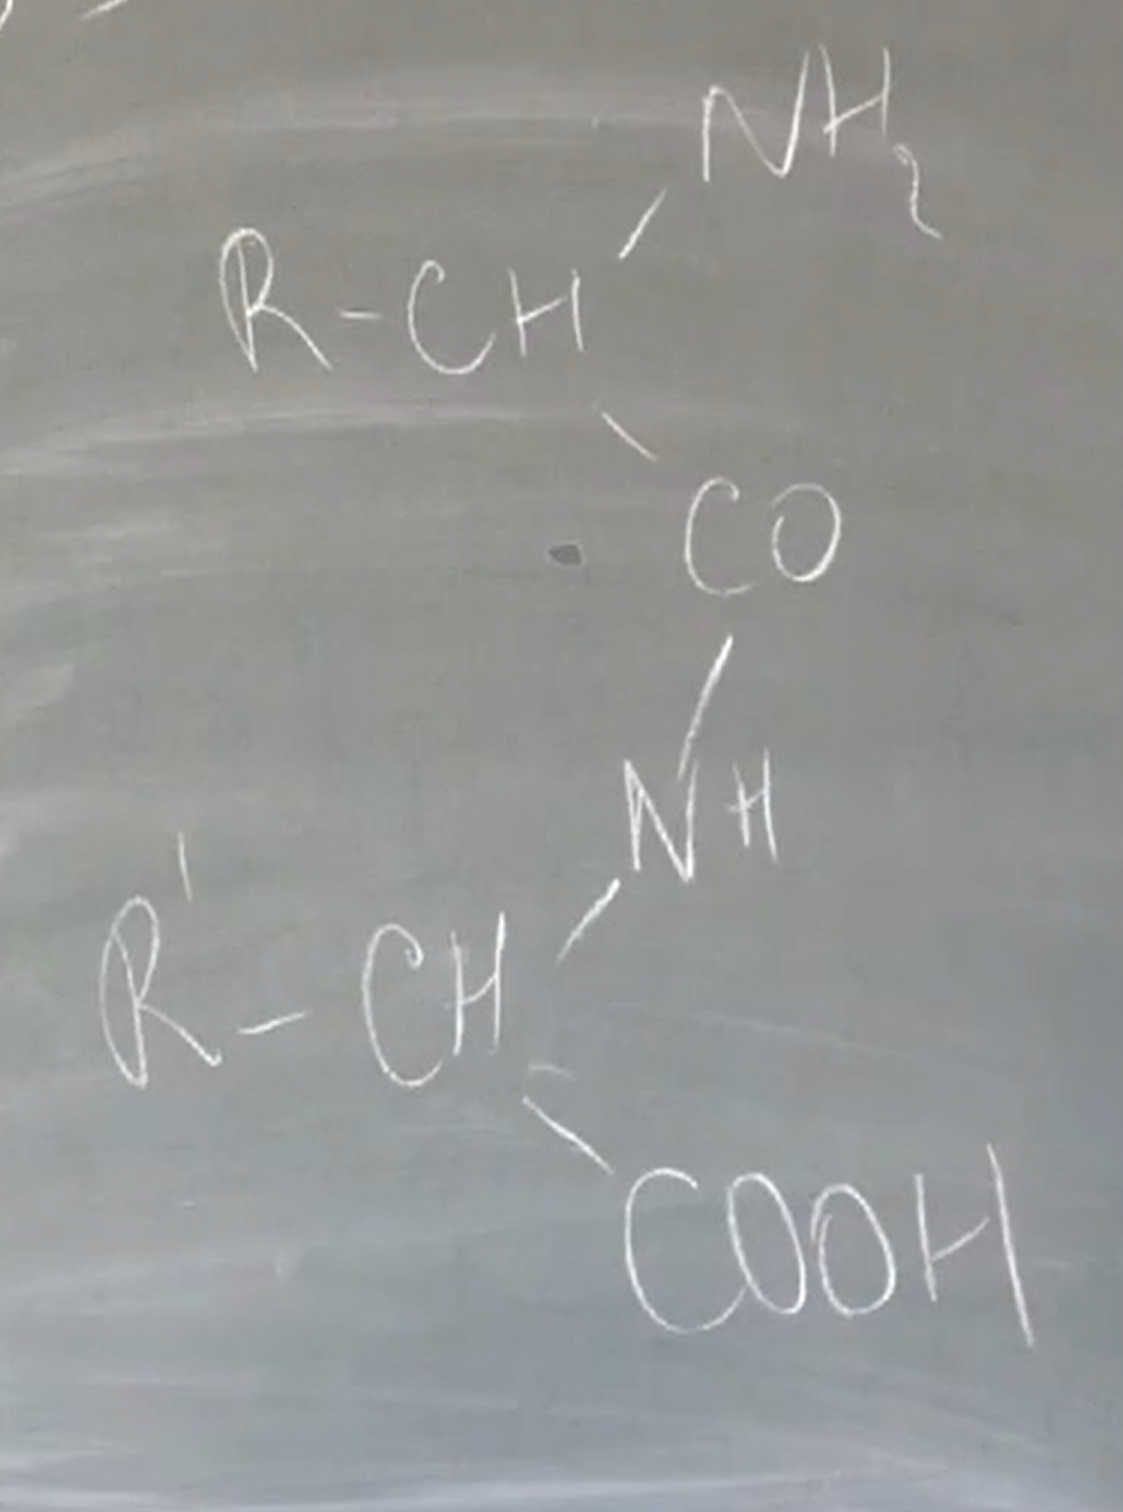 NH2
R-CH
CO
NH
R'-CH
COOH